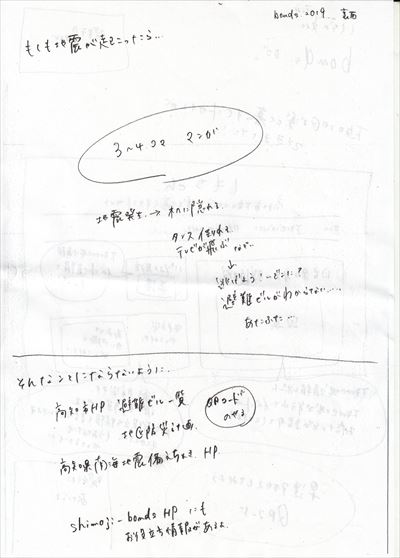 bonds 2019 表面
もしも地震が起こったら...
3〜4コマ マンガ
地震発生 → 机に隠れる
タンス倒れる
テレビが飛ぶ など...
↓
逃げよう!→どこに?
避難ビルがわからない.....
あたふた...
そんなことにならないように...
高知市HP 避難ビル一覧
QRコード
のせる
地区防災計画
高知県南海地震備えちょき HP
shimoji-bonds HP にも
お役立ち情報があるよ